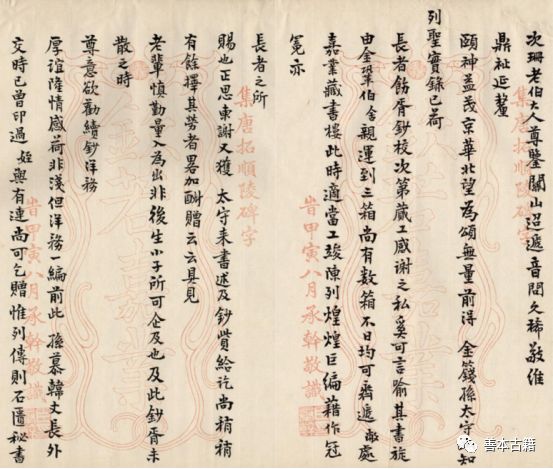 次珊老伯大人尊鑒關山迢遞音問久稀敬維
鼎祉延釐
頤神益茂京華北望為頌無量前得 金籛孫太守知
列聖實錄已荷
長者飭胥鈔校次第蕆工感謝之私奚可言喻其書旋
由金鞏伯舍親運到三箱尚有數箱不日均可齊遞敝處
嘉業藏書樓此時適當工竣陳列煌煌巨編藉作冠
冕亦
集唐拓順陵碑字
旹甲寅八月承幹敬識
長者之所
賜也正思柬謝又獲 太守來書述及鈔貲給訖尚稍稍
有餘擇其勞者畧加酬贈云云具見
老輩慎勤量入為出非後生小子所可企及也及此鈔胥未
散之時
尊意欲勸續鈔洋務
厚誼隆情感荷非淺但洋務一編前此 孫慕韓丈長外
交時已曾印過 姪與有連尚可乞贈惟列傳則石匱秘書
集唐拓順陵碑字
旹甲寅八月承幹敬識
善本古籍